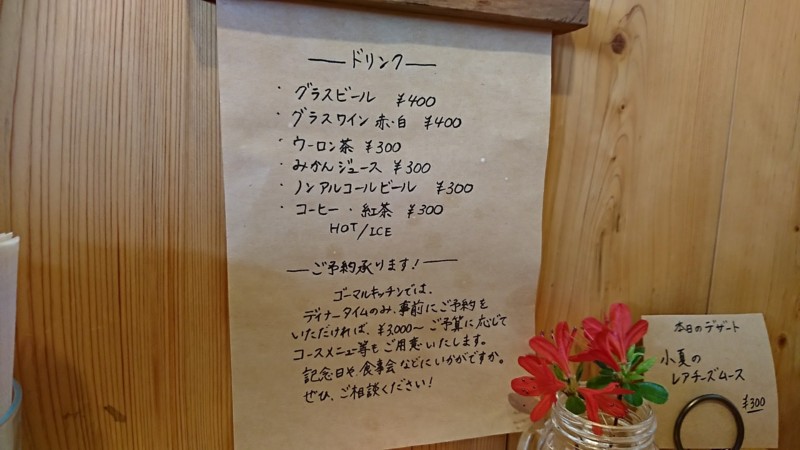 ドリンク
・グラスビール ¥400
・グラスワイン 赤・白 ¥400
・ウーロン茶 ¥300
・みかんジュース ¥300
・ノンアルコールビール ¥300
・コーヒー・紅茶 ¥300
HOT/ICE
ご予約承ります!
ゴーマルキッチンでは、
ディナータイムのみ、事前にご予約を
いただければ、¥3,000〜ご予算に応じて
コースメニュー等もご用意いたします。
記念日や、食事会などにいかがですか。
ぜひ、ご相談ください!
本日のデザート
小夏の
レアチーズムース
¥300